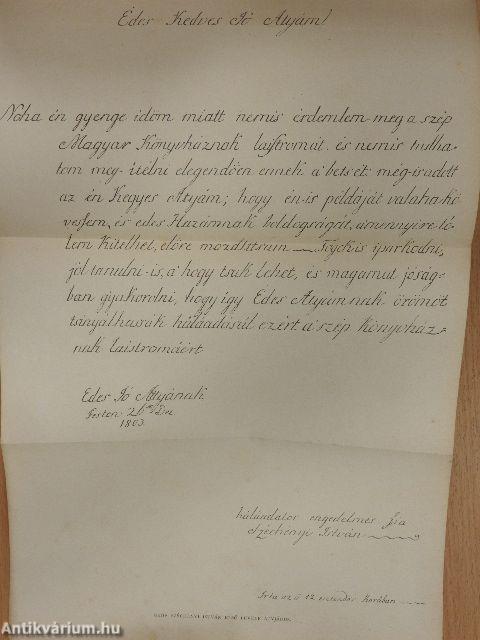 Édes Kedves Jó Atyám!
Noha én gyenge időm miatt nemis érdemlem meg a szép
Magyar Könyvháznak lajstromát és nemis tudha-
tom meg-ítélni elegendően ennek a' betsét: még-is adott
az én Kegyes Atyám; hogy én-is példáját valaha kö
vessem, és édes Hazámnak boldogságát, amennyire tő-
lem kitelhet, előre mozdítsam
iparkodni,
jól tanulni-is, a' hogy tsak lehet, és magamat jóság-
ban gyakorolni, hogy így Édes Atyámnak örömöt
hálaadásúl ezért a' szép Könyvház-
nak laistromáért
Édes Jó Atyának
Pesten 26
1803
háláadatos engedelmes Fia
Széchényi István
Irta az ő 12 esztendős Korában
GRÓF SZÉCHENYI ISTVÁN ELSŐ LEVELE ATYJÁHOZ.
Antikvárium.hu